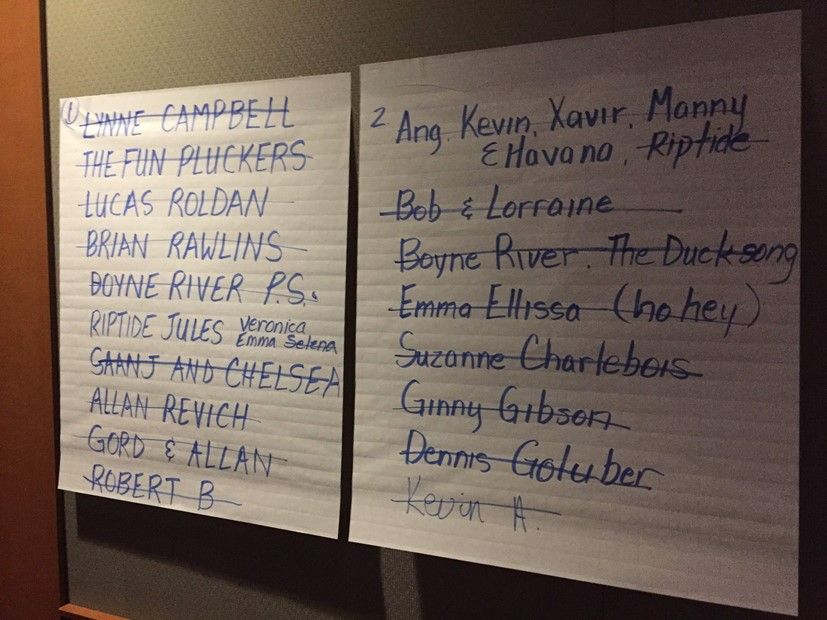 1
LYNNE CAMPBELL
THE FUN PLUCKERS
LUCAS ROLDAN
BRIAN RAWLINS
BOYNE RIVER P.S.
RIPTIDE JULES Veronica
Emma Selena
GAANJ AND CHELSEA
ALLAN REVICH
GORD & ALLAN
ROBERT B
2 Ang, Kevin, Xavir, Manny
& Havana, Riptide
Bob & Lorraine
Boyne River. The Duck song
Emma Ellissa (ho hey)
Suzanne Charlebois
Ginny Gibson
Dennis Gotuber
Kevin A.